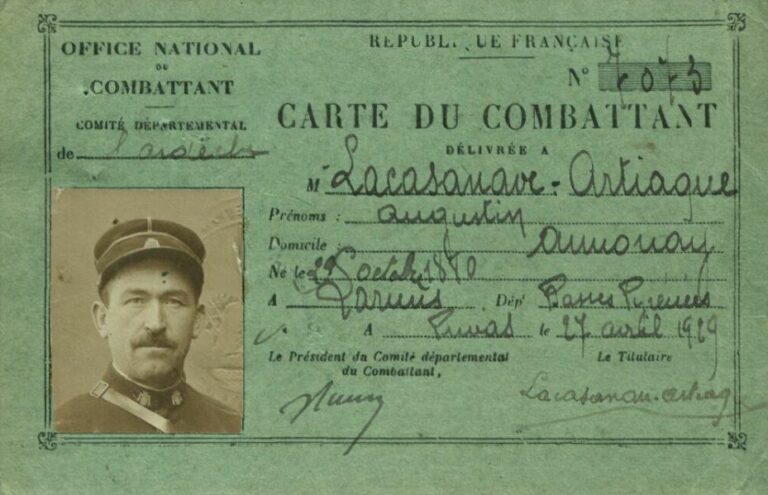 OFFICE NATIONAL
DU
COMBATTANT
COMITÉ DÉPARTEMENTAL
de l'ardèche
RÉPUBLIQUE FRANÇAISE
N° 7073
CARTE DU COMBATTANT
DÉLIVRÉE A
M Lacasanave-Artiague
Prénoms : augustin
Domicile : annonay
Né le octobre 1880
A Dép^t Basses Pyrénées
A Privas le 27 avril 1929
Le Président du Comité départemental
du Combattant,
Le Titulaire
Lacasanave-artiag